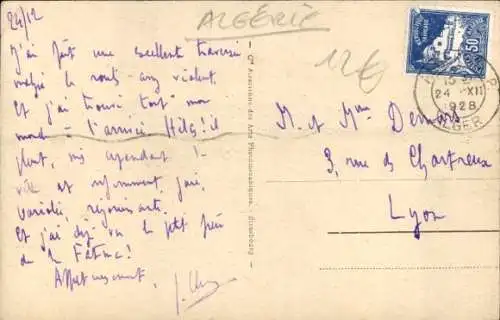 24/12
ALGÉRIE
12€
J'ai fait une excellente traversée
malgré le roulis assez violent.
Et j'ai trouvé tout mon
monde à l'arrivée. Hélas ! il
pleut, mais cependant la
ville est infiniment gaie,
variée, réjouissante.
Et j'ai déjà vu le petit frère
de la Fatma !
Affectueusement,
50
24 XII
1928
ALGER
M. et Mme
3, rue des Chartreux
Lyon
Cie Alsacienne des Arts Photomécaniques, Strasbourg